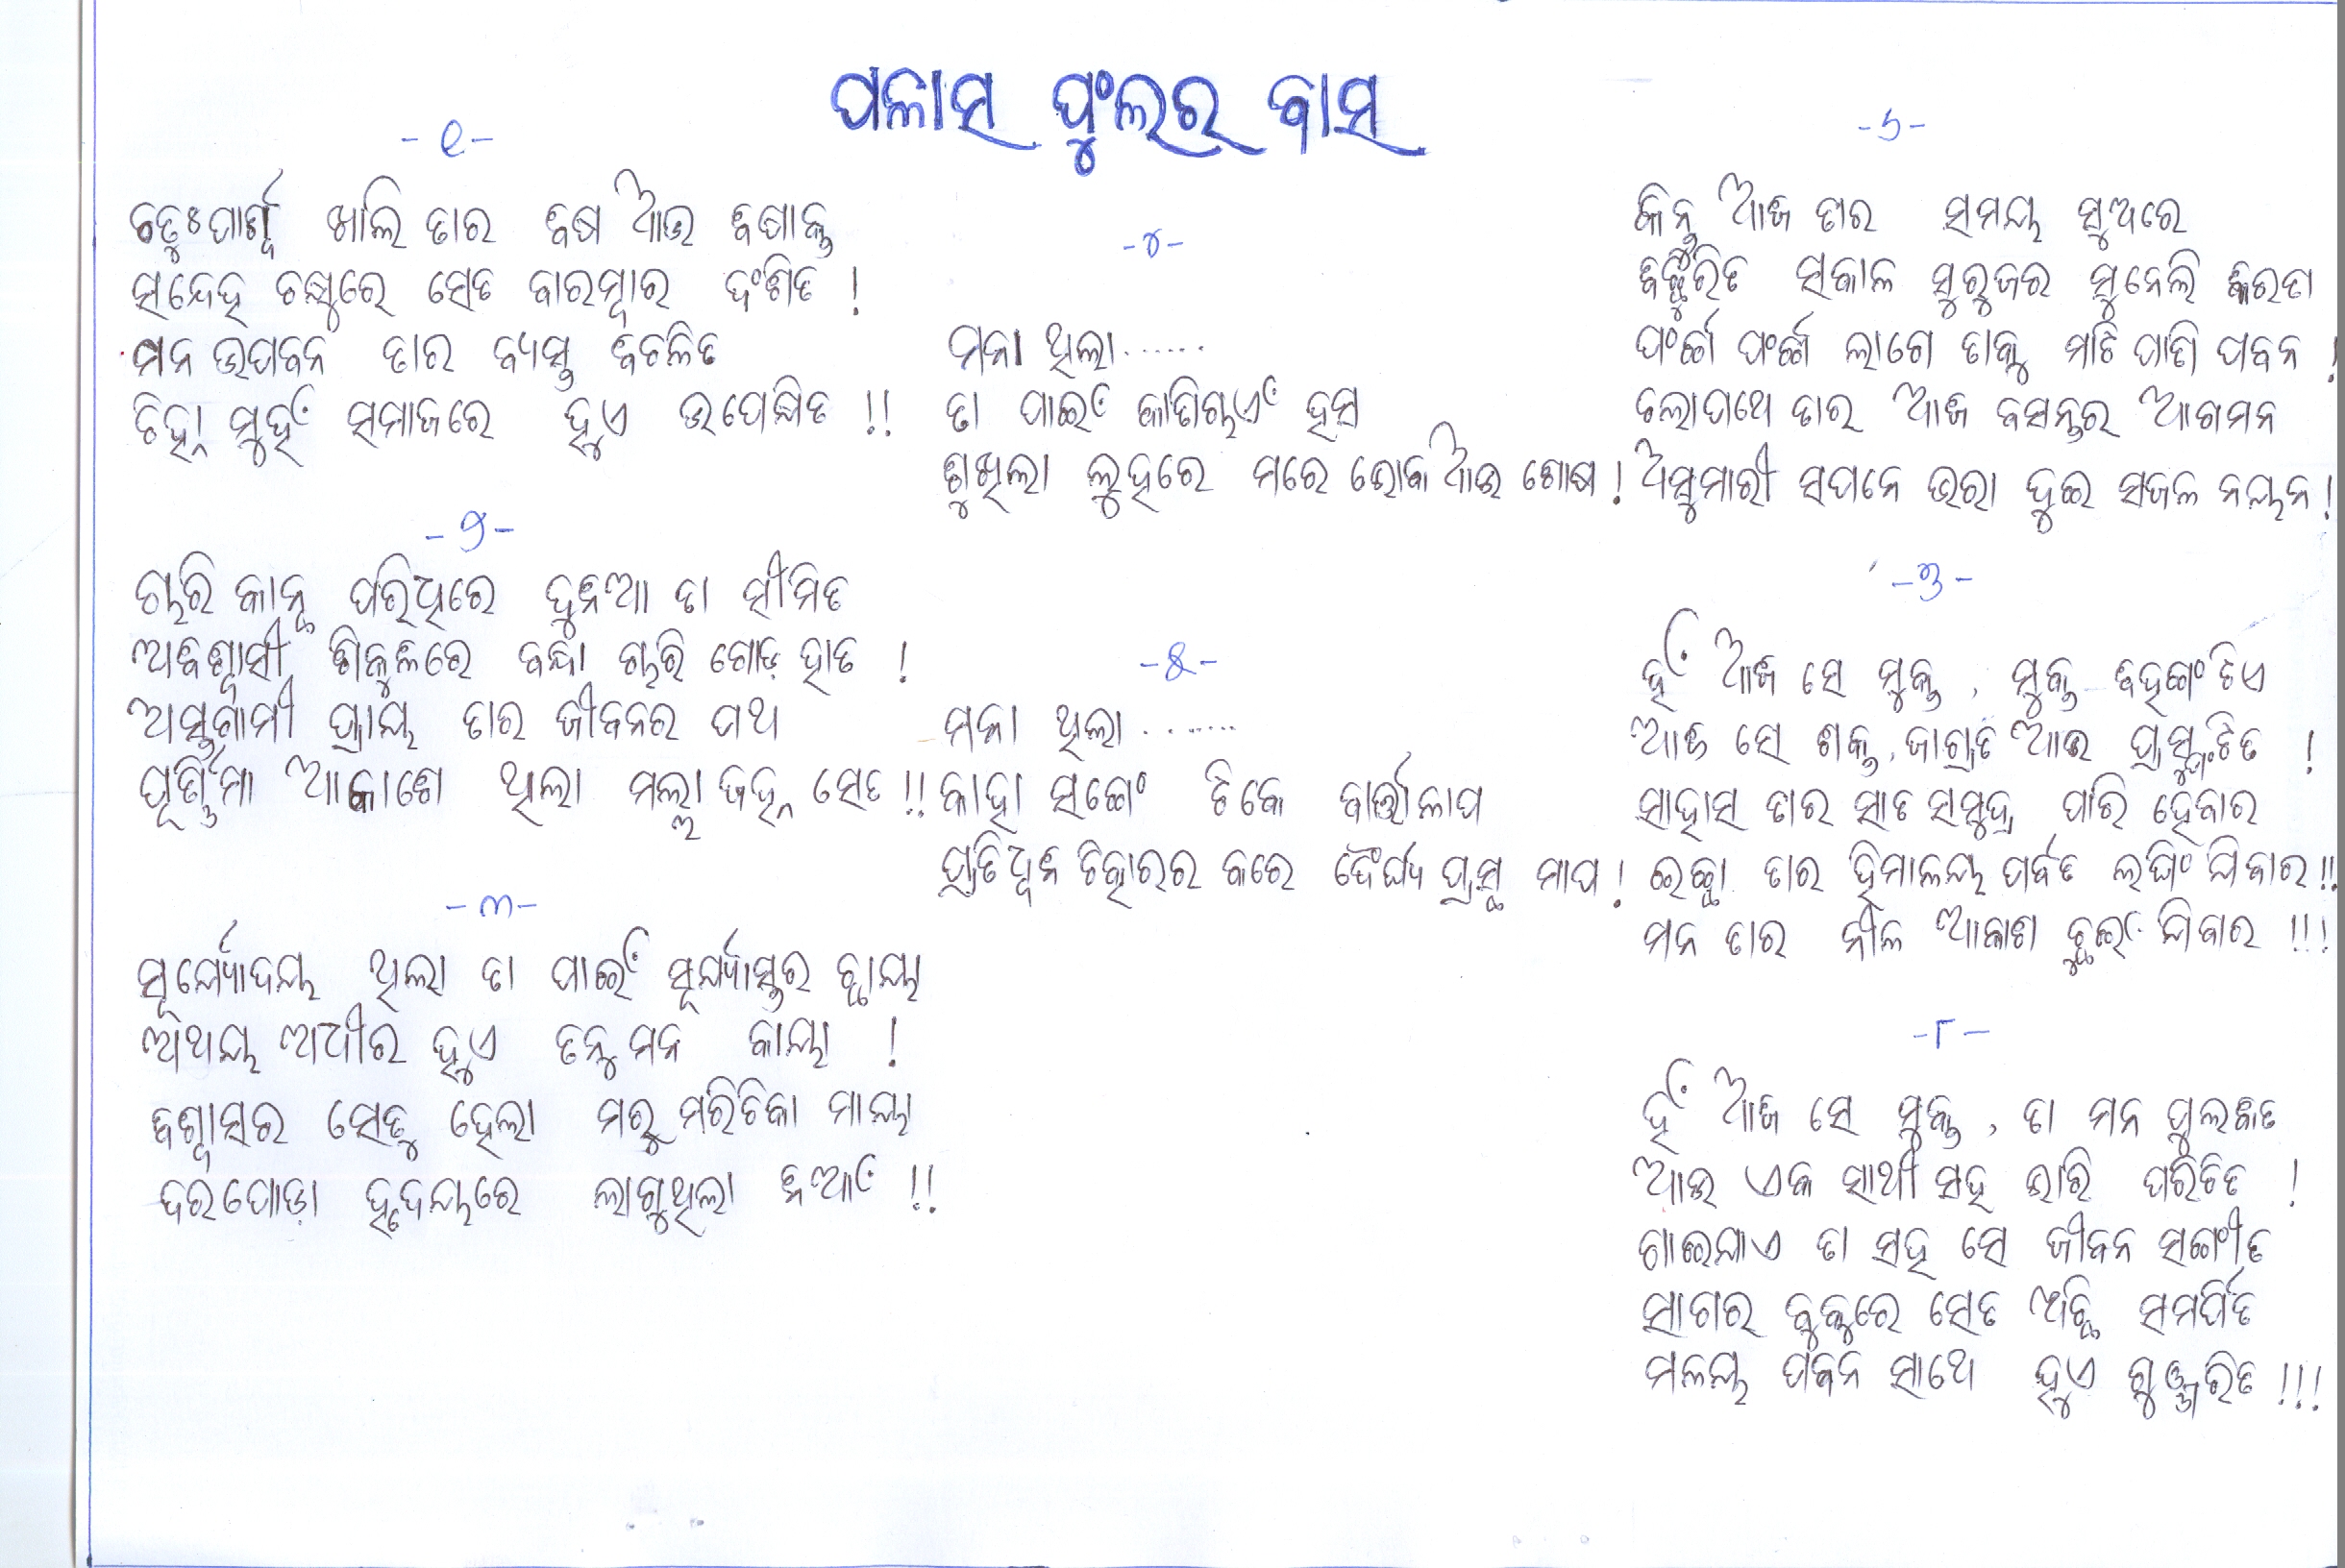 ପଳାସ ଫୁଲର ବାସ
-୧-
ଚତୁଃପାର୍ଶ୍ୱ ଖାଲି ତାର ବିଷ ଆଉ ବିଷାକ୍ତ
ସନ୍ଦେହ ଚକ୍ଷୁରେ ସେତ ବାରମ୍ବାର ଦଂଶିତ !
ମନ ଉପବନ ତାର ବ୍ୟସ୍ତ ବିଚଳିତ
ଚିହ୍ନା ମୁହଁ ସମାଜରେ ହୁଏ ଉପେକ୍ଷିତ !!
-୨-
ଚାରି କାନ୍ଥ ପରିଧିରେ ଦୁନିଆ ତା ସୀମିତ
ଅବିଶ୍ୱାସୀ ଶିକୁଳିରେ ବନ୍ଧା ଚାରି ଗୋଡ଼ ହାତ !
ଅସ୍ତଗାମୀ ପ୍ରାୟ ତାର ଜୀବନର ପଥ
ପୂର୍ଣ୍ଣିମା ଆକାଶେ ଥିଲା ମଲା ଜହ୍ନ ସେତ !!
-୩-
ସୂର୍ଯ୍ୟୋଦୟ ଥିଲା ତା ପାଇଁ ସୂର୍ଯ୍ୟାସ୍ତର ଛାୟା
ଅଥୟ ଅଧୀର ହୁଏ ତନୁ ମନ କାୟା !
ବିଶ୍ୱାସର ସେତୁ ହେଲା ମରୁ ମରିଚିକା ମାୟା
ଦରପୋଡ଼ା ହୃଦୟରେ ଲାଗୁଥିଲା ନିଆଁ !!
-୪-
ମନା ଥିଲା......
ତା ପାଇଁ କାଚିଚାଏଁ ହସ
ଶୁଖିଲା ଲୁହରେ ମରେ ଭୋକ ଆଉ ଶୋଷ !
-୫-
ମନା ଥିଲା .......
କାହା ସଙ୍ଗେ ଟିକେ ବାର୍ତ୍ତାଳାପ
ପ୍ରତିଧ୍ୱନି ଚିତ୍କାରର କରେ ଦୈର୍ଘ୍ୟ ପ୍ରସ୍ଥ ମାପ !
-୬-
କିନ୍ତୁ ଆଜି ତାର ସମୟ ସୁଅରେ
ବିଚ୍ଛୁରିତ ସକାଳ ସୁରୁଜର ସୁନେଲି କିରଣ
ଫର୍ଚ୍ଚା ଫର୍ଚ୍ଚା ଲାଗେ ତାକୁ ମାଟି ପାଣି ପବନ !
ଚଲାପଥେ ତାର ଆଜି ବସନ୍ତର ଆଗମନ
ଅସୁମାରୀ ସପନେ ଭରା ଦୁଇ ସଜଳ ନୟନ !
-୭-
ହଁ ଆଜି ସେ ମୁକ୍ତ , ମୁକ୍ତ ବିହଙ୍ଗଂ ଟିଏ
ଆଜି ସେ ଶକ୍ତ, ଜାଗ୍ରତ ଆଉ ପ୍ରସ୍ଫୁଟିତ !
ସାହାସ ତାର ସାତ ସମୁଦ୍ର ପାରି ହେବାର
ଇଚ୍ଛା ତାର ହିମାଳୟ ପର୍ବତ ଲଘିଂ ଯିବାର !!
ମନ ତାର ନୀଳ ଆକାଶ ଛୁଇଁ ଯିବାର !!!
-୮-
ହଁ ଆଜି ସେ ମୁକ୍ତ , ତା ମନ ପୁଲକିତ
ଆଉ ଏକ ସାଥୀ ସହ ଭାରି ପରିଚିତ !
ଗାଇଯାଏ ତା ସହ ସେ ଜୀବନ ସଙ୍ଗୀତ
ସାଗର ବୁକୁରେ ସେତ ଅଛି ସମର୍ପିତ
ମଳୟ ପବନ ସାଥେ ହୁଏ ଗୁଞ୍ଜରିତ !!!